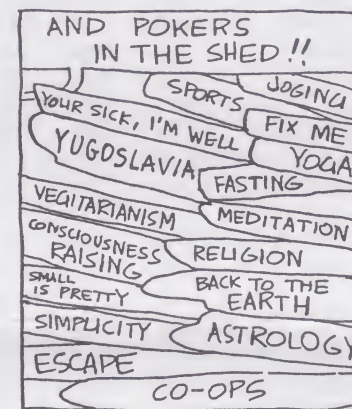 AND POKERS
IN THE SHED!!
SPORTS
JOGING
YOUR SICK, I'M WELL
FIX ME
YUGOSLAVIA
YOGA
FASTING
VEGITARIANISM
MEDITATION
CONSCIOUSNESS
RAISING
RELIGION
SMALL
IS PRETTY
BACK TO THE
EARTH
SIMPLICITY
ASTROLOGY
ESCAPE
CO-OPS